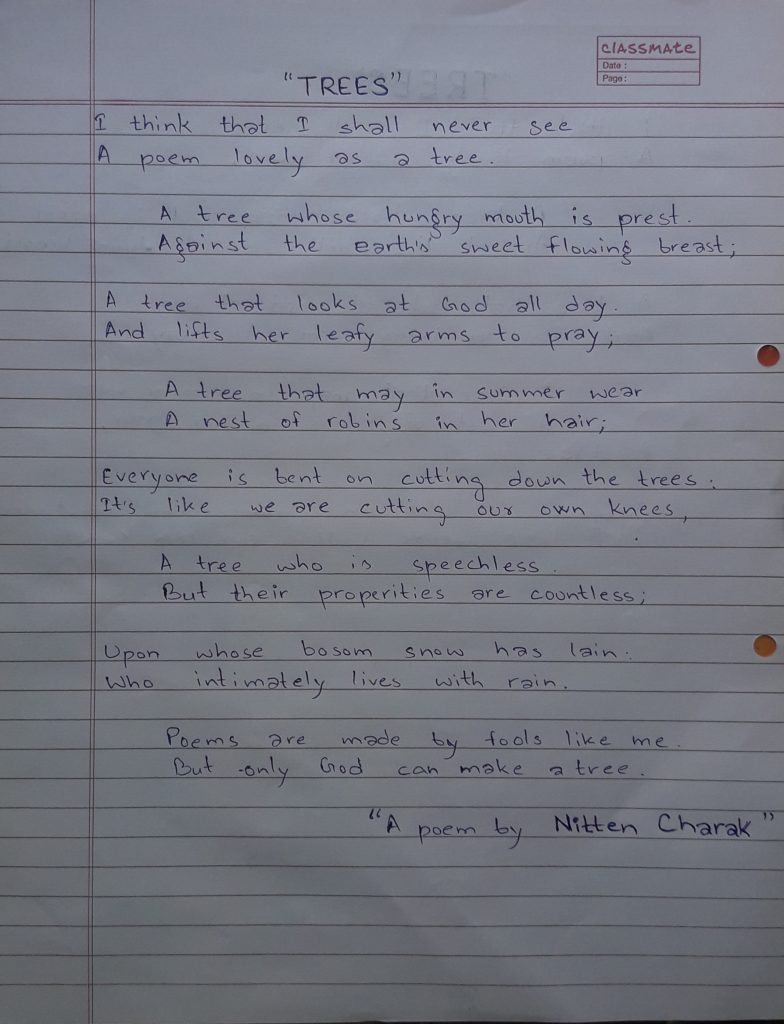 CLASSMATE
Date :
Page :
"TREES"
I think that I shall never see
A poem lovely as a tree.
A tree whose hungry mouth is prest.
Against the earth's sweet flowing breast;
A tree that looks at God all day.
And lifts her leafy arms to pray;
A tree that may in summer wear
A nest of robins in her hair;
Everyone is bent on cutting down the trees.
It's like we are cutting our own knees,
A tree who is speechless.
But their properities are countless;
Upon whose bosom snow has lain.
Who intimately lives with rain.
Poems are made by fools like me.
But only God can make a tree.
"A poem by Nitten Charak"